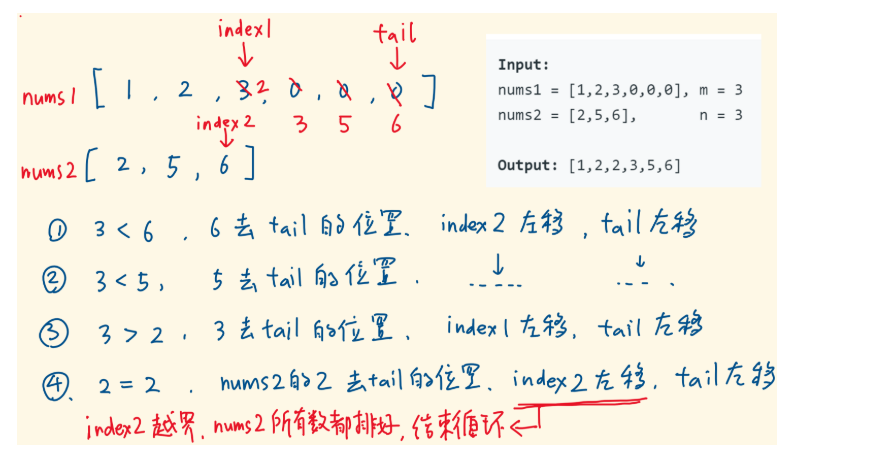 index1 tail
nums1 [ 1 , 2 , 3 2 , 0 , 0 , 0 ]
index2 3 5 6
nums2 [ 2 , 5 , 6 ]
Input:
nums1 = [1,2,3,0,0,0], m = 3
nums2 = [2,5,6], n = 3
Output: [1,2,2,3,5,6]
① 3 < 6 , 6 去 tail 的位置、 index2 左移 , tail 左移
② 3 < 5 , 5 去 tail 的位置 .
③ 3 > 2 , 3 去 tail 的位置、 index1 左移, tail 左移
④、 2 = 2 . nums2的2 去tail的位置、index2左移, tail左移
index2越界, nums2所有数都排好, 结束循环